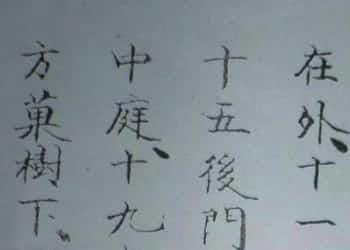 在外、十一
十五後門
中庭、十九
方菓樹下、